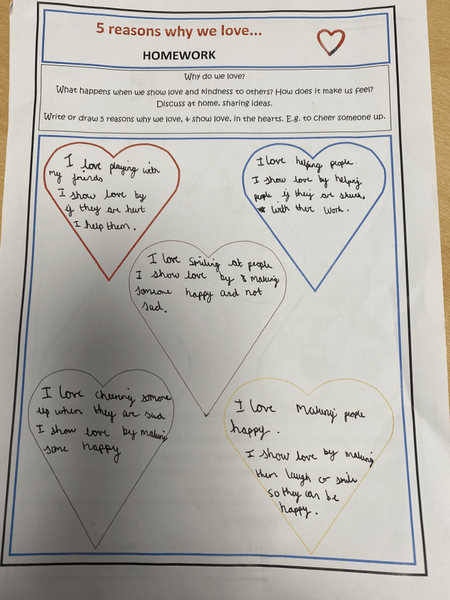 5 reasons why we love...
HOMEWORK
Why do we love?
What happens when we show love and kindness to others? How does it make us feel?
Discuss at home, sharing ideas.
Write or draw 5 reasons why we love, & show love, in the hearts. E.g. to cheer someone up.
I love playing with
my friends
I show love by
if they are hurt
I help them.
I love helping people.
I show love by helping
people if they are stuck,
with there work.
I love smiling at people
I show love by making
someone happy and not
sad.
I love cheering someone
up when they are sad
I show love by making
some happy
I love making people
happy.
I show love by making
them laugh or smile
so they can be
happy.